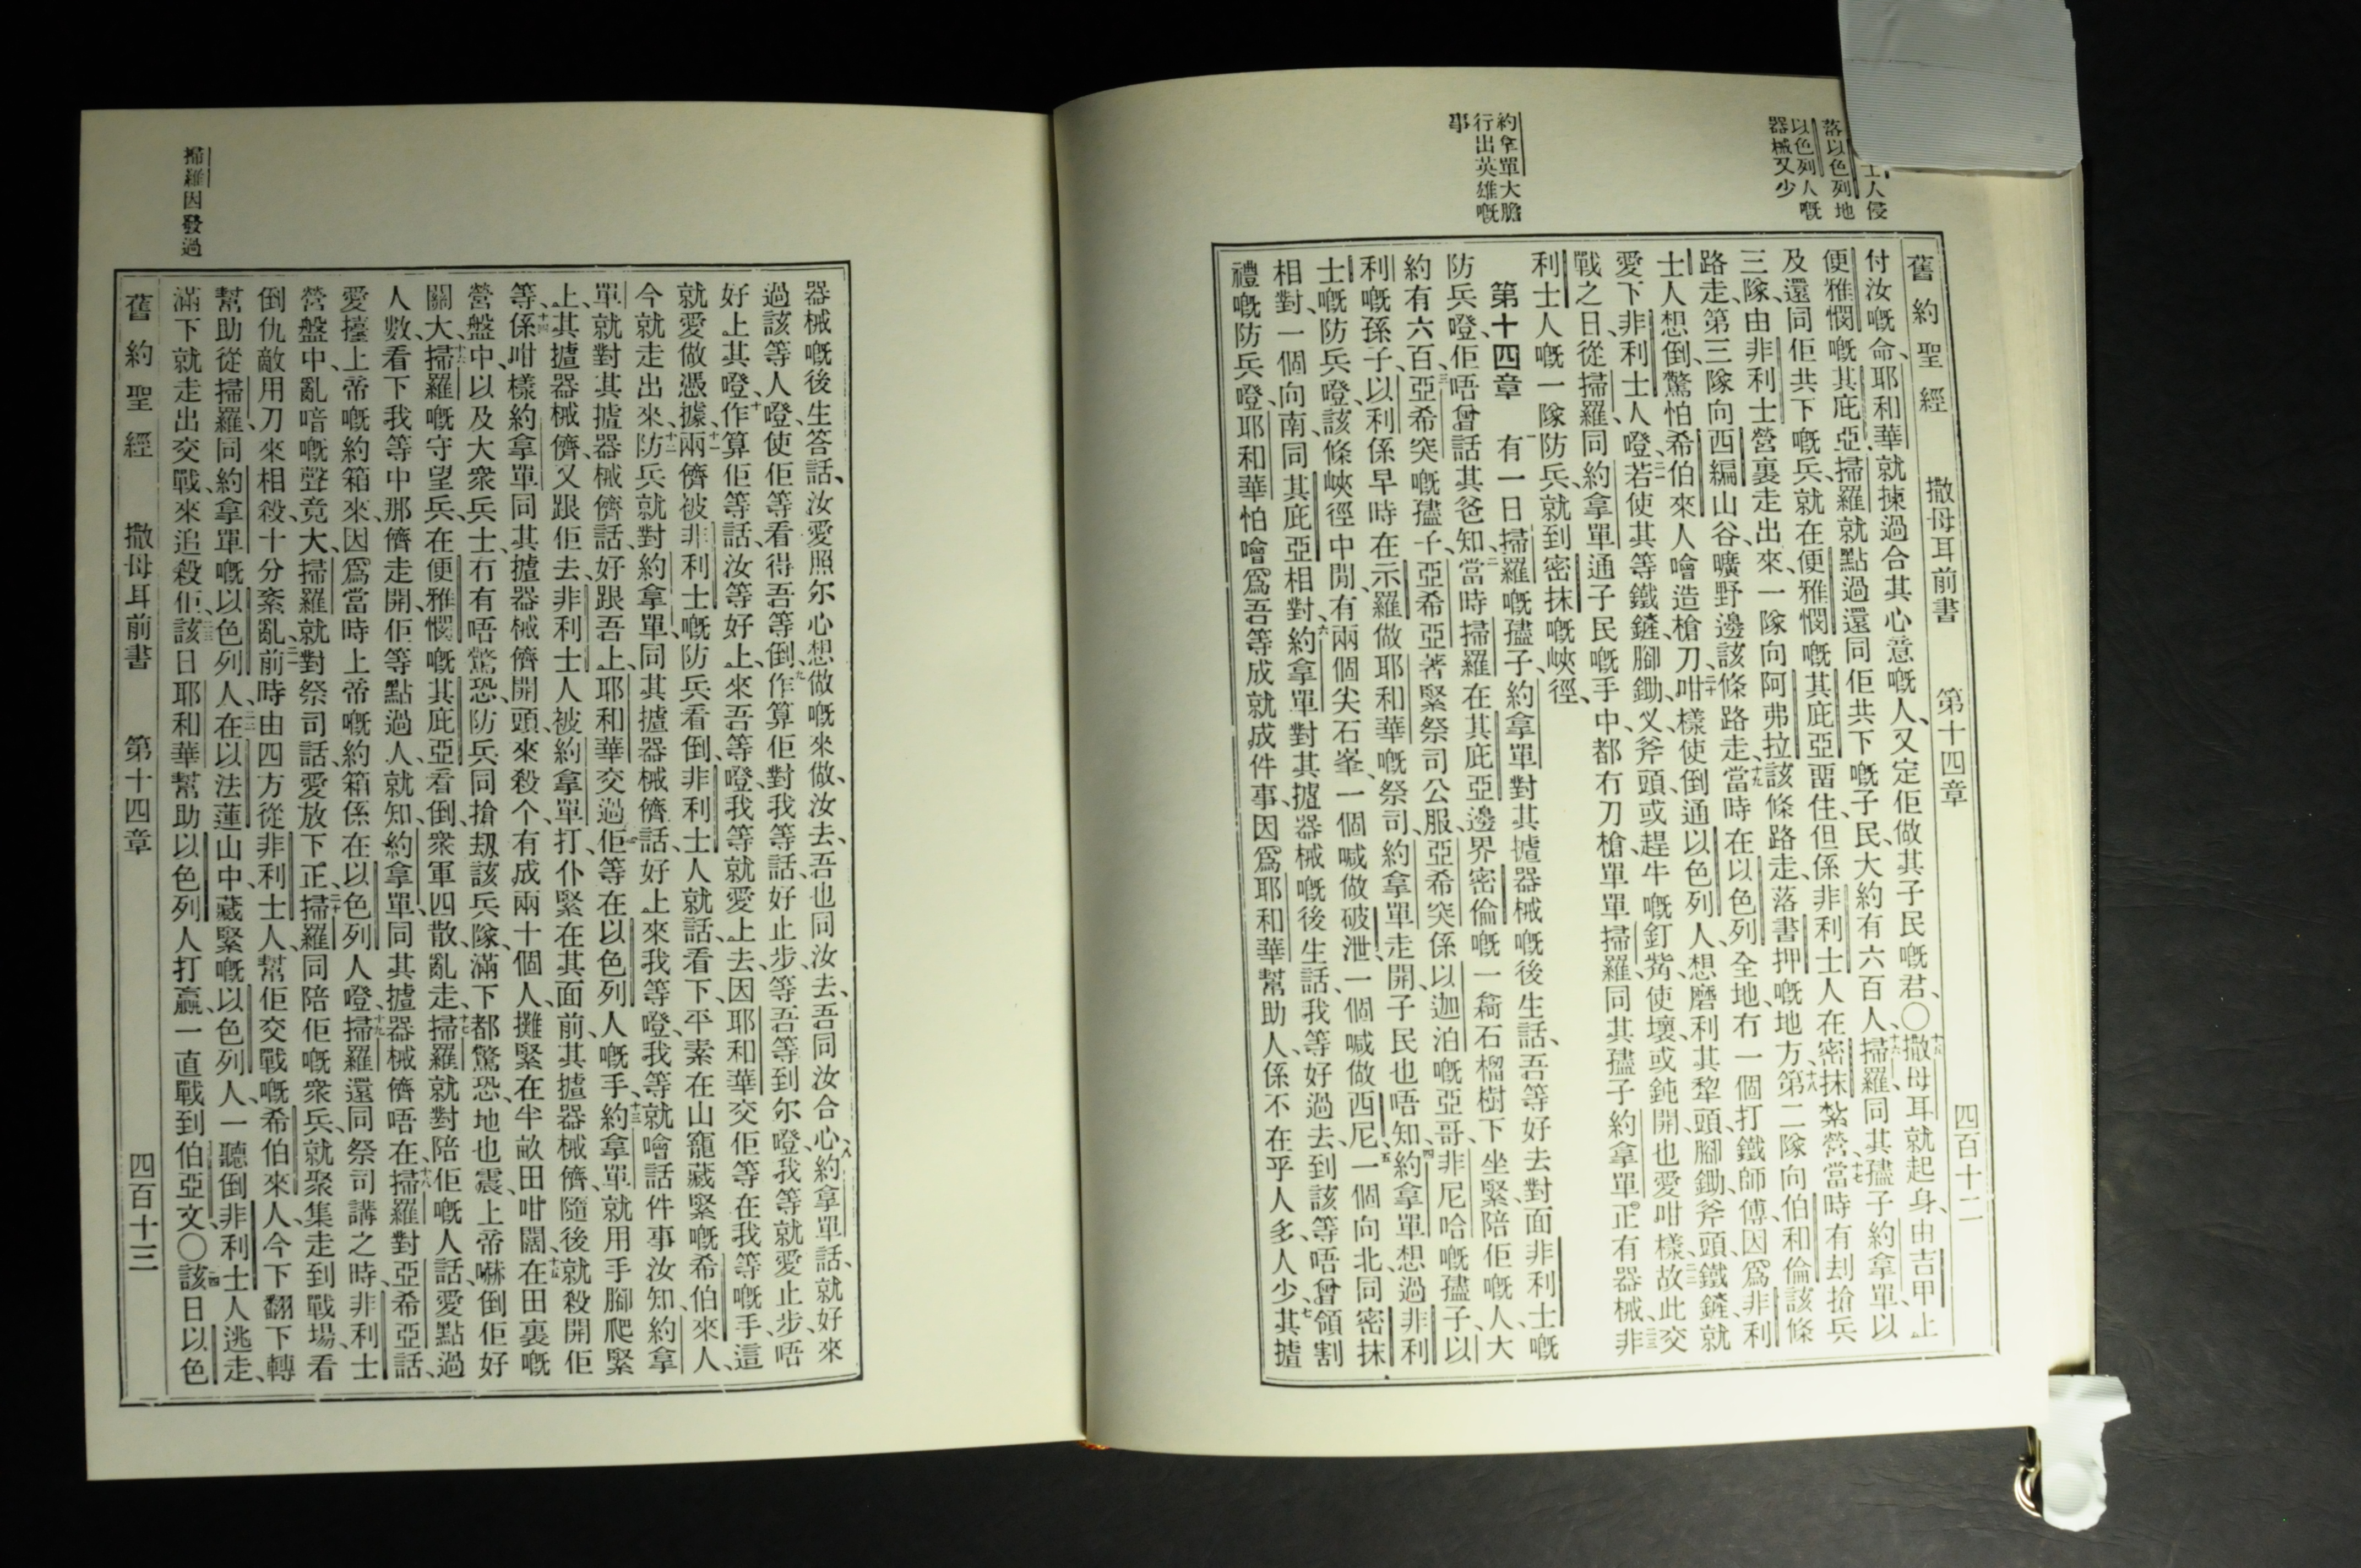 士人侵
落以色列地
以色列人嘅
器械又少
約拿單大膽
行出英雄嘅
事
舊約聖經 撒母耳前書 第十四章 四百十二
付汝嘅命、耶和華就揀過合其心意嘅人、又定佢做其子民嘅君、〇十五撒母耳就起身、由吉甲上
便雅憫嘅其庇亞、掃羅就點過還同佢共下嘅子民、大約有六百人、十六掃羅同其孻子約拿單、以
及還同佢共下嘅兵、就在便雅憫嘅其庇亞畱住、但係非利士人在密抹紮營、十七當時有刦搶兵
三隊、由非利士營裏走出來、一隊向阿弗拉該條路走、落書押嘅地方、十八第二隊向伯和倫該條
路走、第三隊向西編山谷、曠野邊該條路走、十九當時在以色列全地冇一個打鐵師傅、因爲非利
士人想倒、驚怕希伯來人噲造槍刀、二十咁樣使倒通以色列人、想磨利其犂頭、腳鋤、斧頭、鐵鏟、就
愛下非利士人嶝、二一若使其等鐵鏟、腳鋤、义、斧頭、或趕牛嘅釘觜、使壞、或鈍開、也愛咁樣、二二故此交
戰之日、從掃羅同約拿單通子民嘅手中、都冇刀槍、單單掃羅、同其孻子約拿單、正有器械、二三非
利士人嘅一隊防兵、就到密抹嘅峽徑、
第十四章 一有一日、掃羅嘅孻子、約拿單對其摣器械嘅後生話、吾等好去、對面非利士嘅
防兵嶝、佢唔曾話其爸知、二當時掃羅在其庇亞邊界密倫嘅一蔸石榴樹下坐緊、陪佢嘅人、大
約有六百、三亞希突嘅孻子、亞希亞著緊祭司公服、亞希突係以迦泊嘅亞哥、非尼哈嘅孻子、以
利嘅孫子、以利係早時在示羅做耶和華嘅祭司、約拿單走開、子民也唔知、四約拿單想過非利
士嘅防兵嶝、該條峽徑中閒、有兩個尖石峯、一個喊做破泄、一個喊做西尼、五一個向北、同密抹
相對、一個向南、同其庇亞相對、六約拿單對其摣器械嘅後生話、我等好過去、到該等唔曾領割
禮嘅防兵嶝、耶和華怕噲爲吾等成就成件事、因爲耶和華幫助人、係不在乎人多、人少、七其摣
器械嘅後生答話、汝愛照尔心想做嘅來做、汝去、吾也同汝去、吾同汝合心、八約拿單話、就好來
過該等人嶝、使佢等看得吾等倒、九作算佢對我等話、好止步、等吾等到尔嶝、我等就愛止步、唔
好上其嶝、十作算佢等話、汝等好上來吾等嶝、我等就愛上去、因耶和華交佢等在我等嘅手、這
就愛做憑據、十一兩儕被非利士嘅防兵看倒、非利士人就話、看下、平素在山竉藏緊嘅希伯來人、
今就走出來、十二防兵就對約拿單、同其摣器械儕話、好上來我等嶝、我等就噲話件事汝知、約拿
單就對其摣器械儕話、好跟吾上、耶和華交過佢等在以色列人嘅手、十三約拿單就用手腳爬緊
上、其摣器械儕、又跟佢去、非利士人被約拿單打仆緊在其面前、其摣器械儕、隨後就殺開佢
等、十四係咁樣約拿單同其摣器械儕開頭來殺个、有成兩十個人、攤緊在半畝田咁闊、十五在田裏嘅
營盤中、以及大衆兵士、冇有唔驚恐、防兵同搶刼該兵隊、滿下都驚恐、地也震、上帝嚇倒佢好
關大、十六掃羅嘅守望兵、在便雅憫嘅其庇亞看倒、衆軍四散、亂走、十七掃羅就對陪佢嘅人話、愛點過
人數、看下我等中那儕走開、佢等點過人、就知約拿單、同其摣器械儕唔在、十八掃羅對亞希亞話、
愛擡上帝嘅約箱來、因爲當時上帝嘅約箱係在以色列人嶝、十九掃羅還同祭司講之時、非利士
營盤中、亂喑嘅聲竟大、掃羅就對祭司話、愛放下正、二十掃羅同陪佢嘅衆兵、就聚集走到戰場、看
倒仇敵用刀來相殺、十分紊亂、二一前時由四方從非利士人、幫佢交戰嘅希伯來人、今下翻下轉
幫助從掃羅、同約拿單嘅以色列人、二二在以法蓮山中、藏緊嘅以色列人、一聽倒非利士人逃走、
滿下就走出交戰、來追殺佢、二三該日耶和華幫助以色列人打贏、一直戰到伯亞文、〇二四該日以色
舊約聖經 撒母耳前書 第十四章 四百十三
掃羅因發過